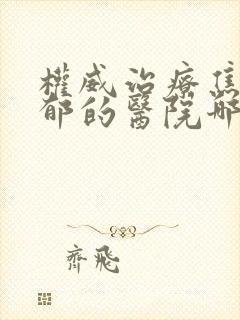 權威治療焦
郁的醫院哪
齊飛